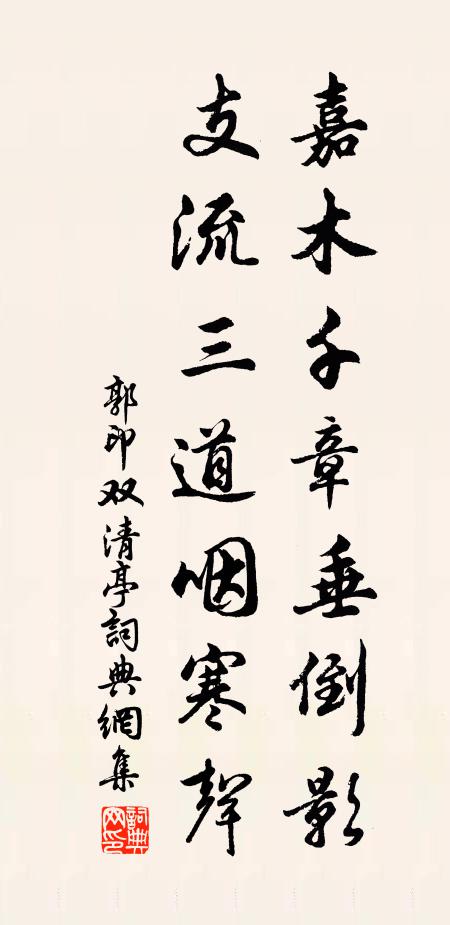 嘉木千章垂倒影
支流三道咽寒聲
郭印双清亭詞典網集
詞典網印